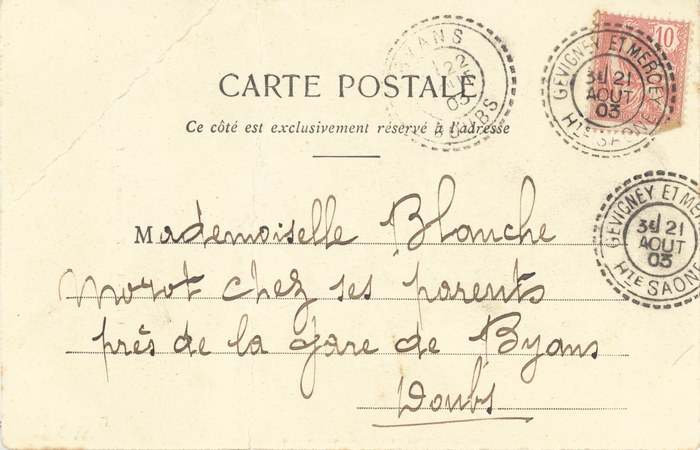 BYANS
22
03
DOUBS
10
GEVIGNEY ET MERCEY
3E 21
AOUT
03
HTE SAONE
CARTE POSTALE
Ce côté est exclusivement réservé à l'adresse
GEVIGNEY ET ME
3E 21
AOUT
03
HTE SAONE
Mademoiselle Blanche
Morot chez ses parents
près de la gare de Byans
Doubs